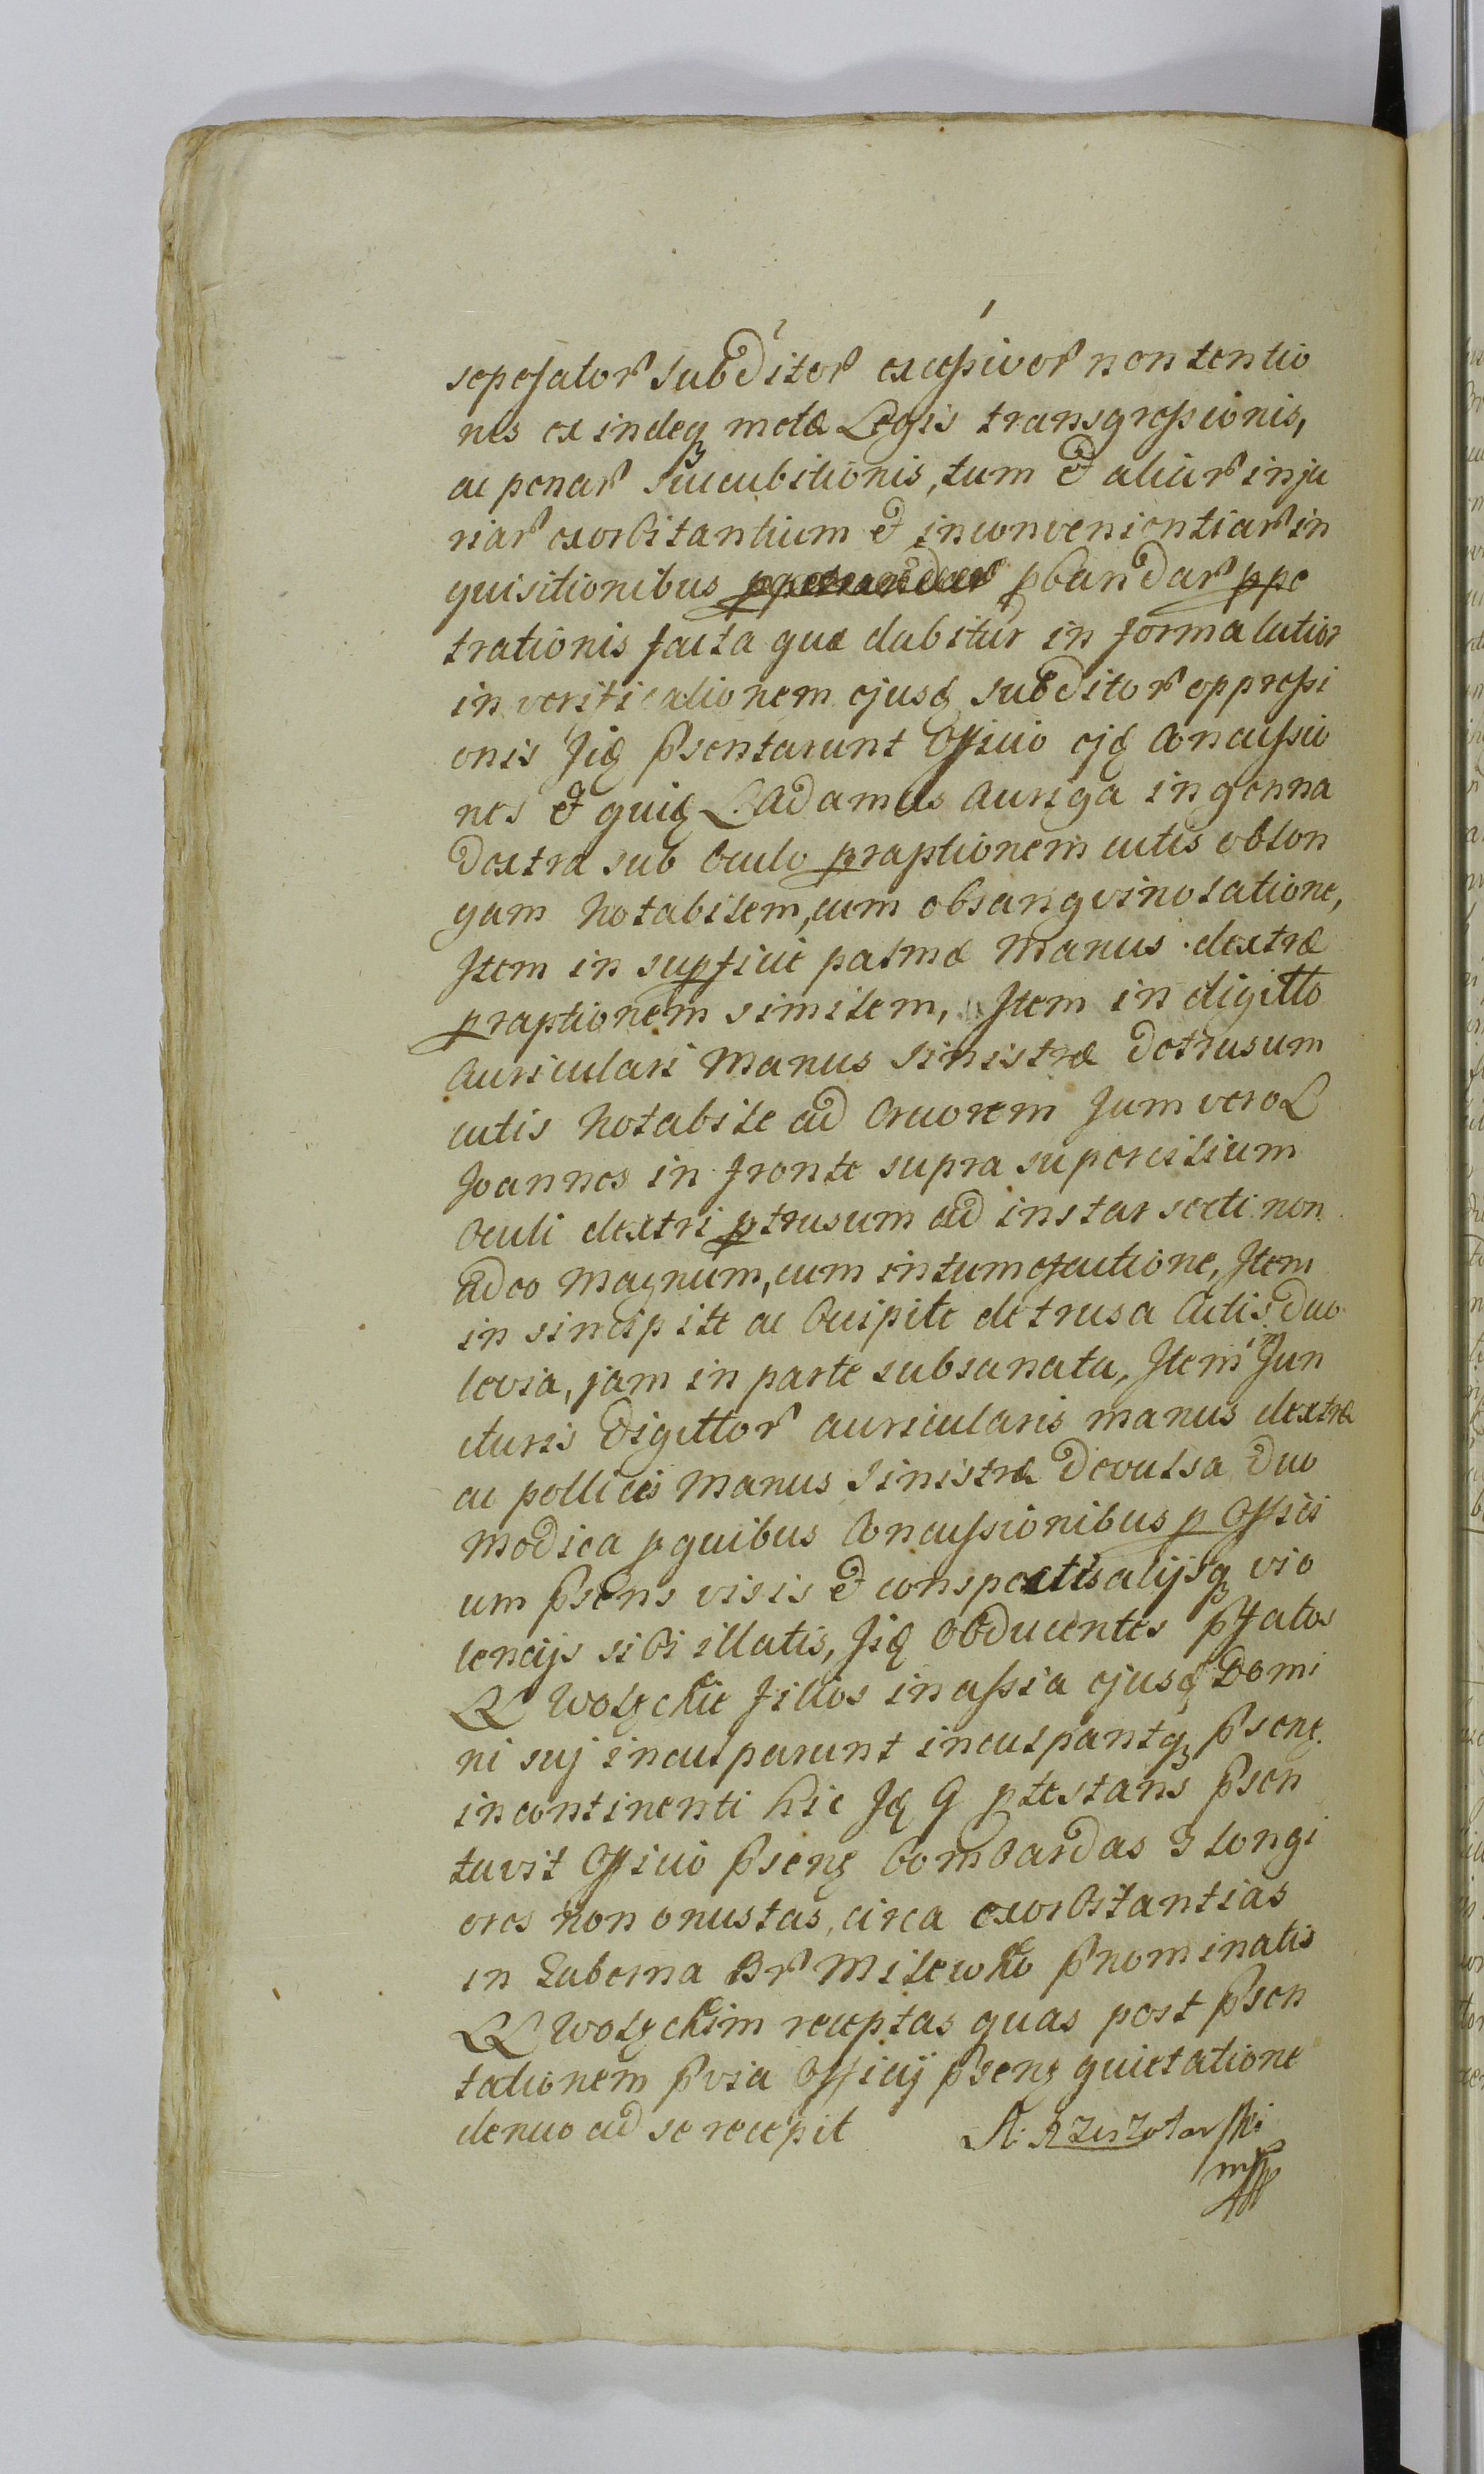 sepefator subditor excessivor non tentio
nes ex indeq metæ Legis transgressionis,
ac penar succubitionis, tum et aliar inju
riar exorbitantium et inconvenientiar in
quisitionibus pbandar ppe
trationis facta quæ dabitur in forma latior
in verificationem ejusq subditor oppressi
onis Jiq psentarunt Officio ejq Concussio
nes et quiq L. Adamus Auriga in genna
dextra sub Oculo praptionem cutis oblon
gam notabilem, cum obsangvinolatione,
Item in supficie palmæ manus dextræ
praptionem similem, Item in digitto
Auriculari manus sinistræ detrusum
cutis notabile ad Cruorem Jum vero L
Joannes in fronte supra supercilium
Oculi dextri ptrusum ad instar secti non
adeo magnum, cum intumefactione, Item
in sincipite ac Occipite detrusa Cutis duo
levia, jam in parte subsanata, Item in Jun
cturis Digittor auricularis manus dextræ
ac pollicis manus sinistræ devulsa duo
modica p quibus Concussionibus p Offici
um psens visis et conspectis alijsq vio
lencijs sibi illatis, Jiq Obducentes pfatos
LL Wolyckie filios in assia ejusq Domi
ni suj inculparunt inculpantq pseng
incontinenti hic Jq G ptestans psen
tavit Officio pseng bombardas 3 longi
ores non onustas, circa exorbitantias
in Taberna Br Milewko pnominatis
LL Wolyckim receptas quas post psen
tationem pvia Officij pseng quietatione
denuo ad se recepit
mpp